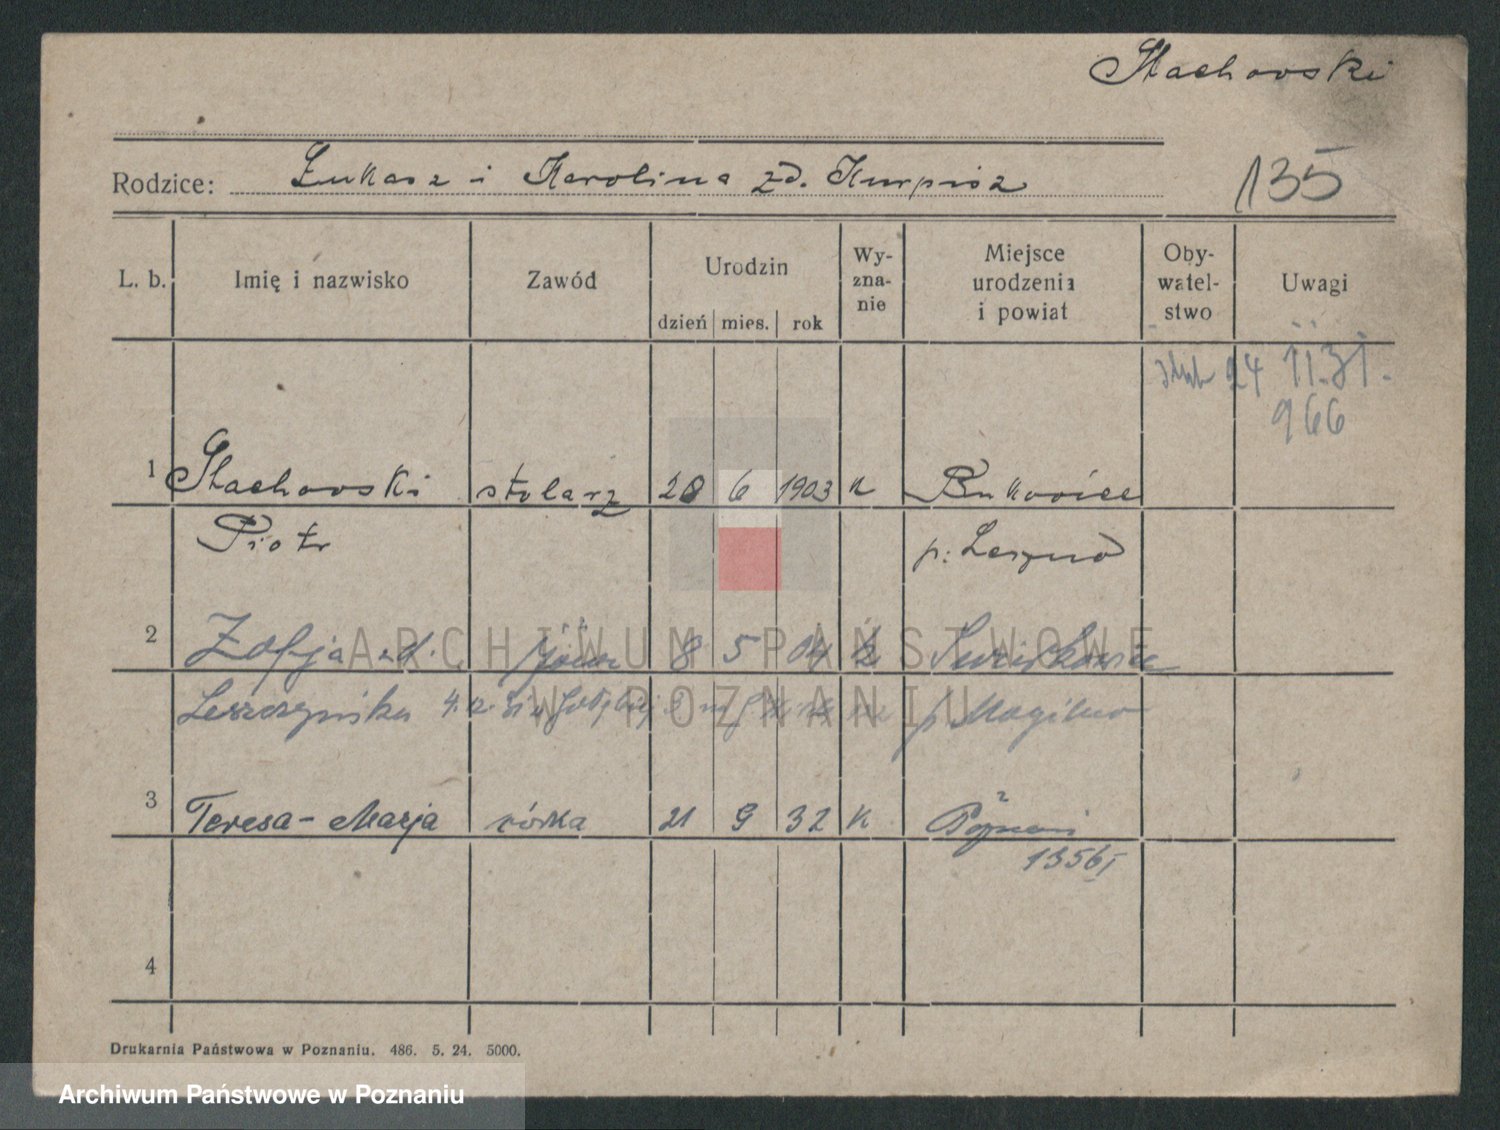 Stachowski
Rodzice: Łukasz i Karolina zd. Kurpisz
135
L. b. Imię i nazwisko Zawód Urodzin Wy-zna-nie Miejsce urodzenia i powiat Oby-watel-stwo Uwagi
dzień mies. rok
24 11.31.
966
1 Stachowski stolarz 28 6 1903 k Bukowiec
Piotr p: Leszno
2 Zofja zd. żona 8 5 04 k
Leszczyńska p Mogilno
3 Teresa-Marja córka 21 9 32 k Poznań
1356
4
Drukarnia Państwowa w Poznaniu. 486. 5. 24. 5000.
ARCHIWUM PAŃSTWOWE
W POZNANIU
Archiwum Państwowe w Poznaniu